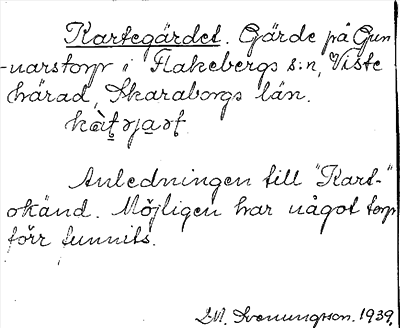 Kartegärdet. Gärde på Gun-
narstorp i Flakebergs s:n, Viste
härad, Skaraborgs län.
Anledningen till "Kart-"
okänd. Möjligen har något torp
förr funnits.
M. Svenungsson. 1939.